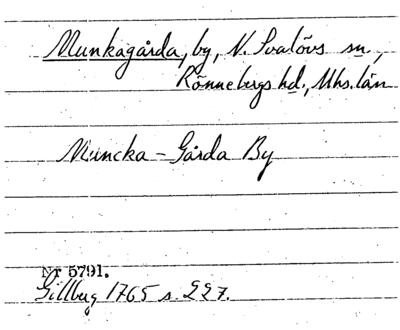 Munkagårda, by, N. Svalövs sn,
Rönnebergs hd., Mhs. län
Muncka-Gårda By
Nr 5791.
Gillberg 1765 s. 227.